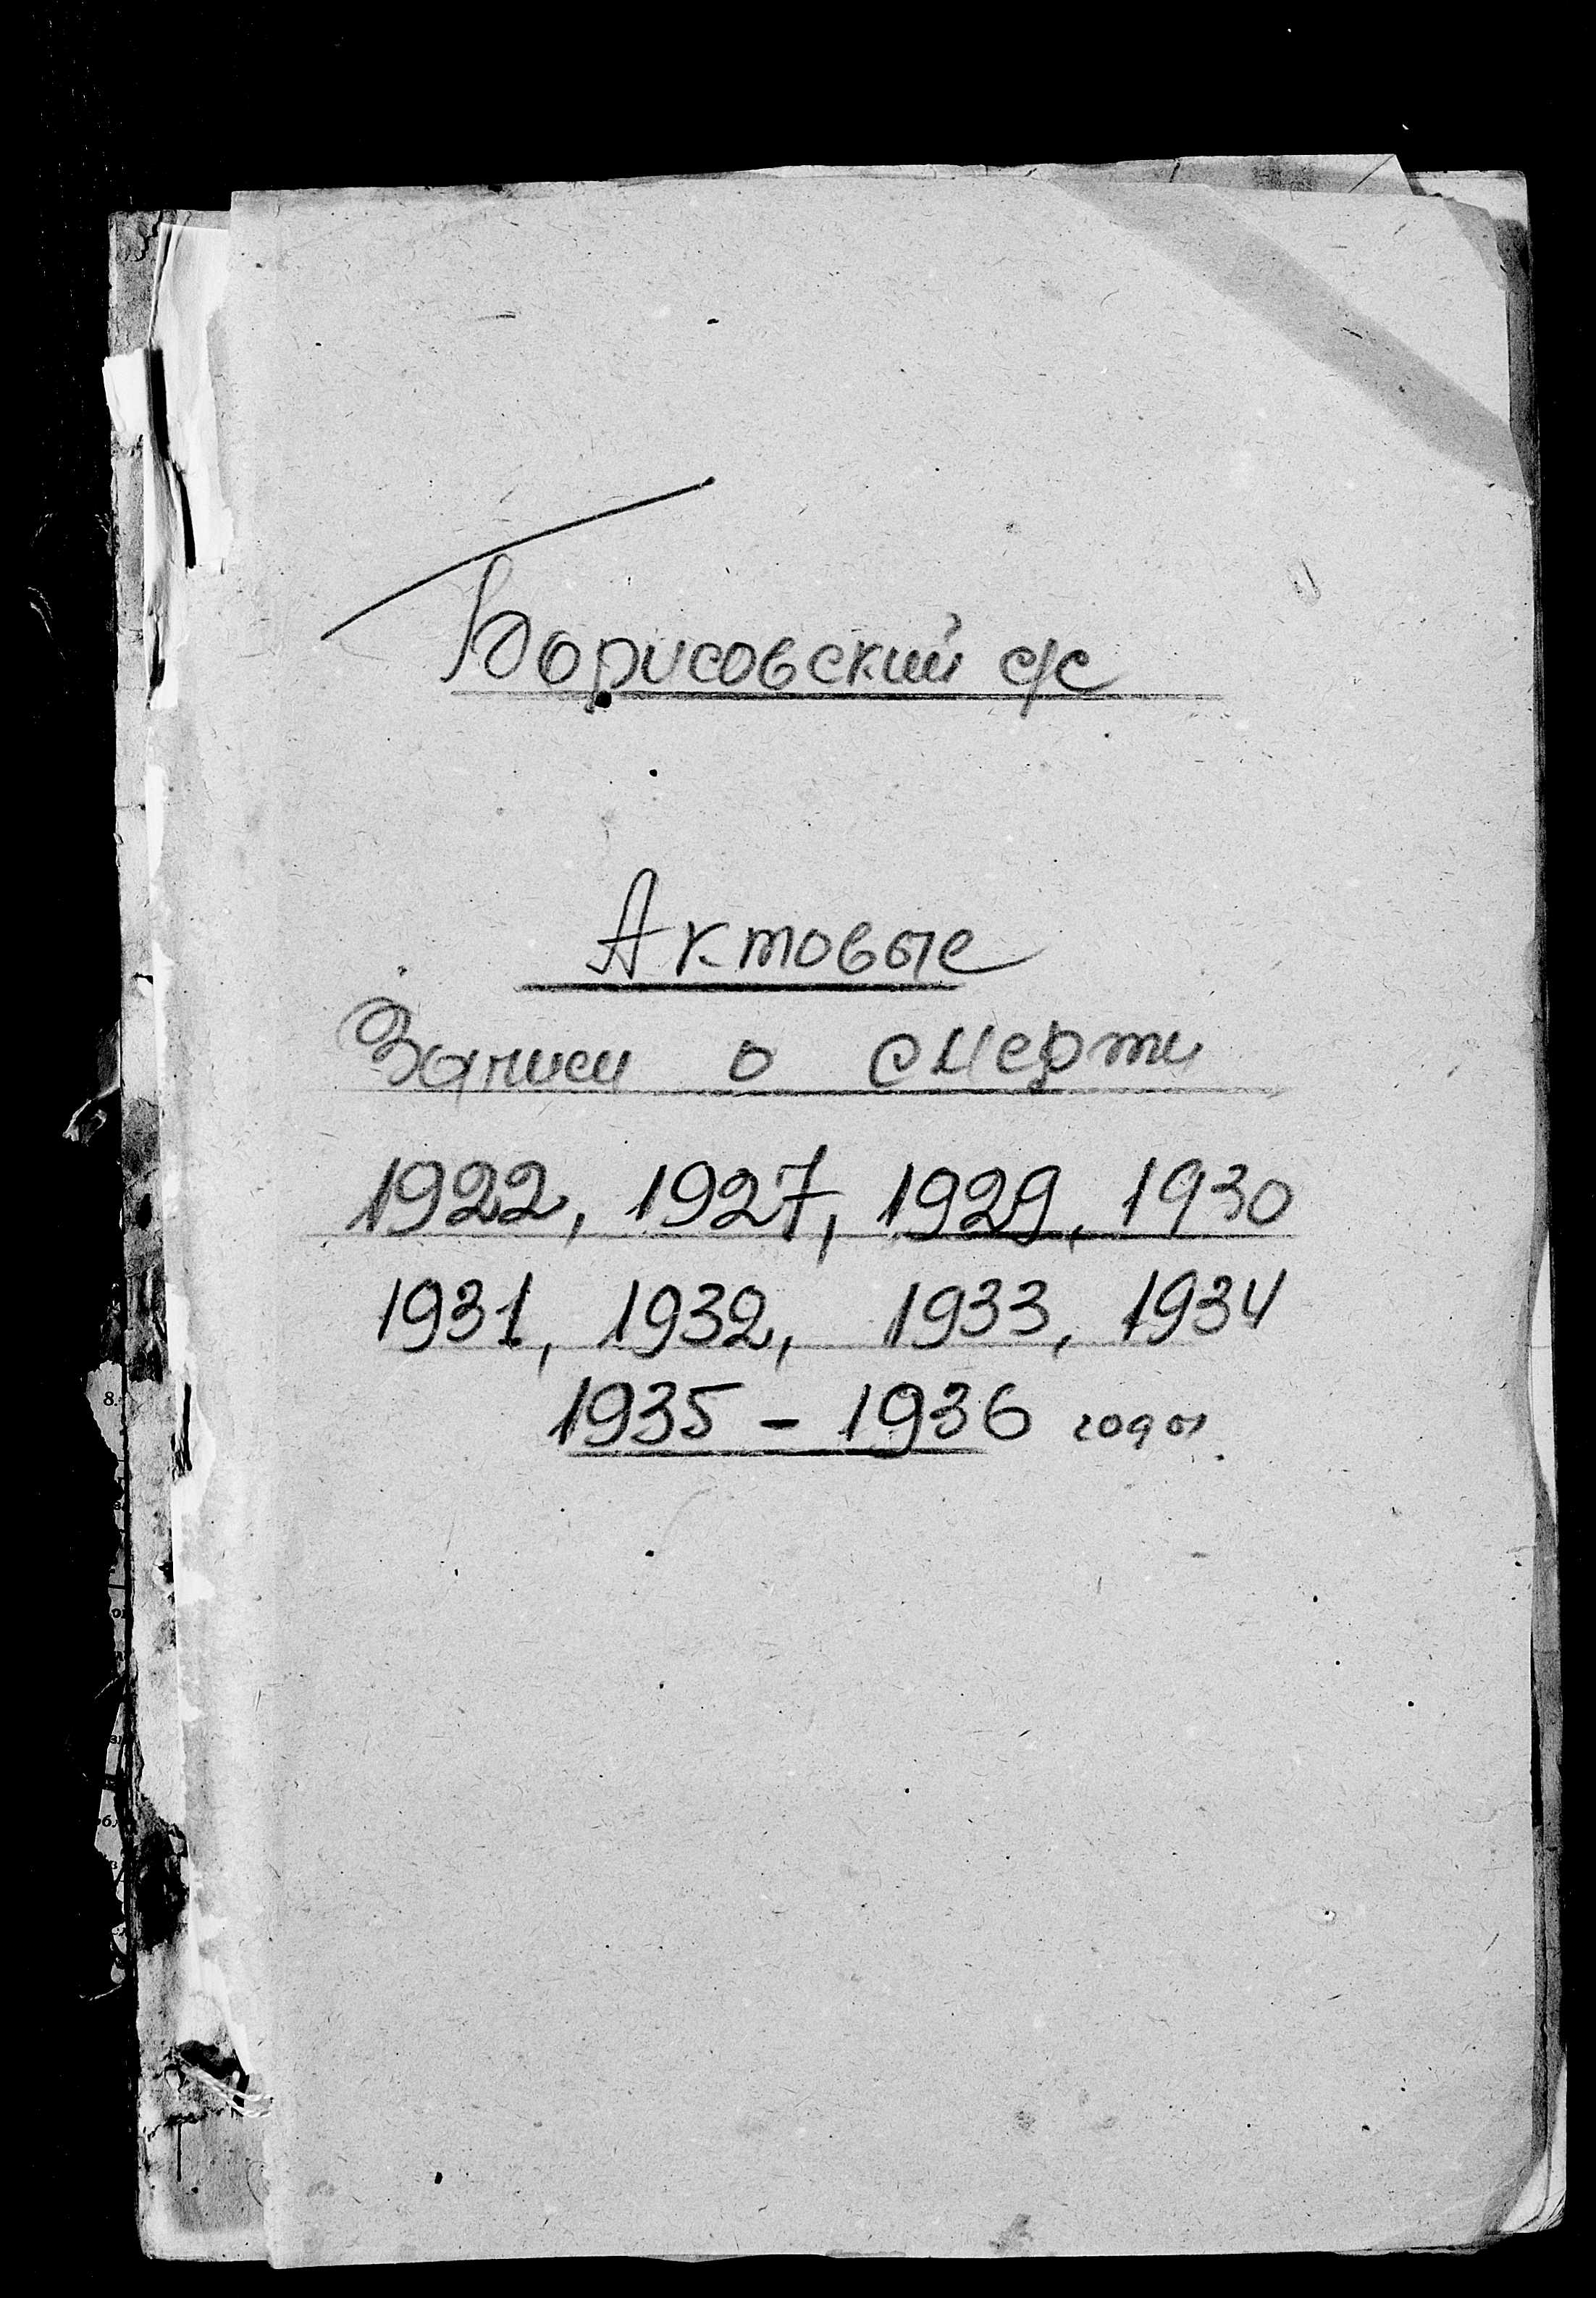 Борисовский с/с
Актовые
Записи о смерти
1922, 1927, 1929, 1930
1931, 1932, 1933, 1934
1935 - 1936 годы
8.